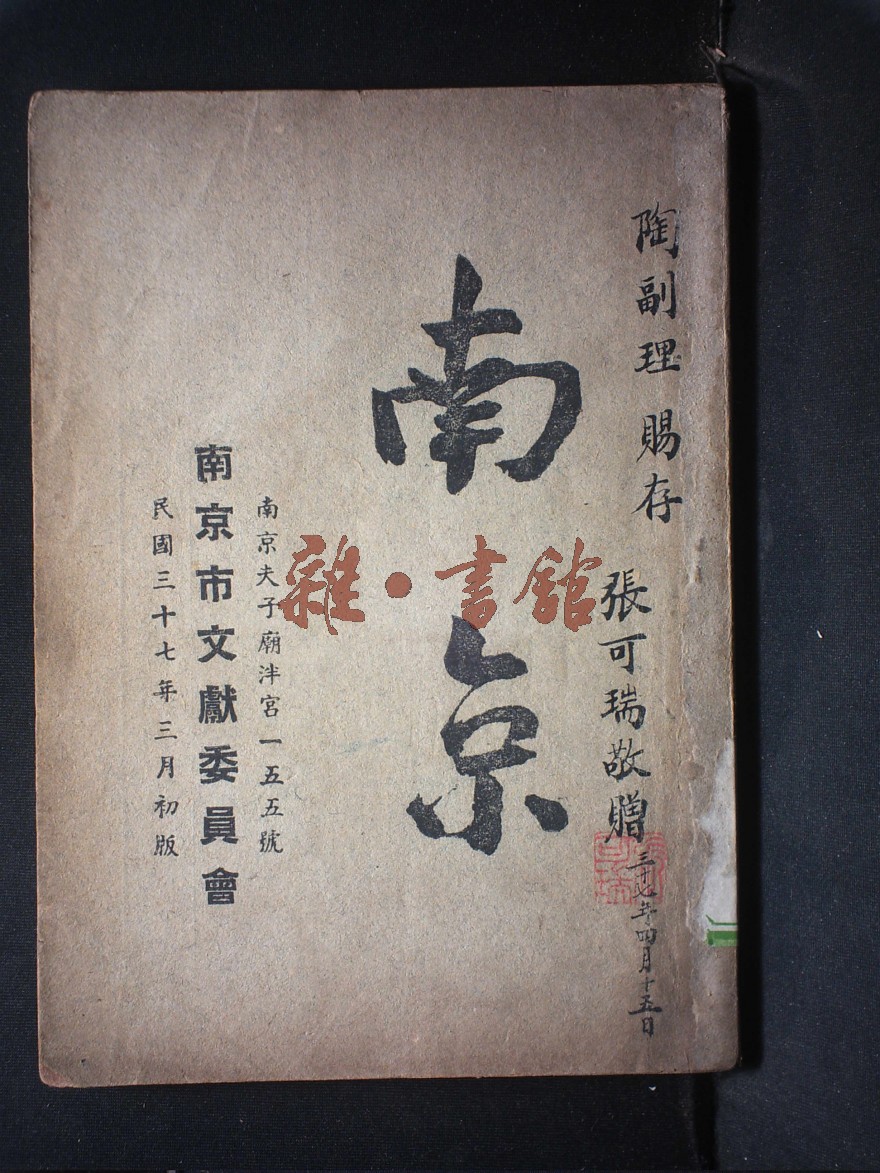 陶副理 賜存
張可瑞敬贈
三十七年四月十五日
南京
南京夫子廟泮宮一五五號
南京市文獻委員會
民國三十七年三月初版
雜·書館